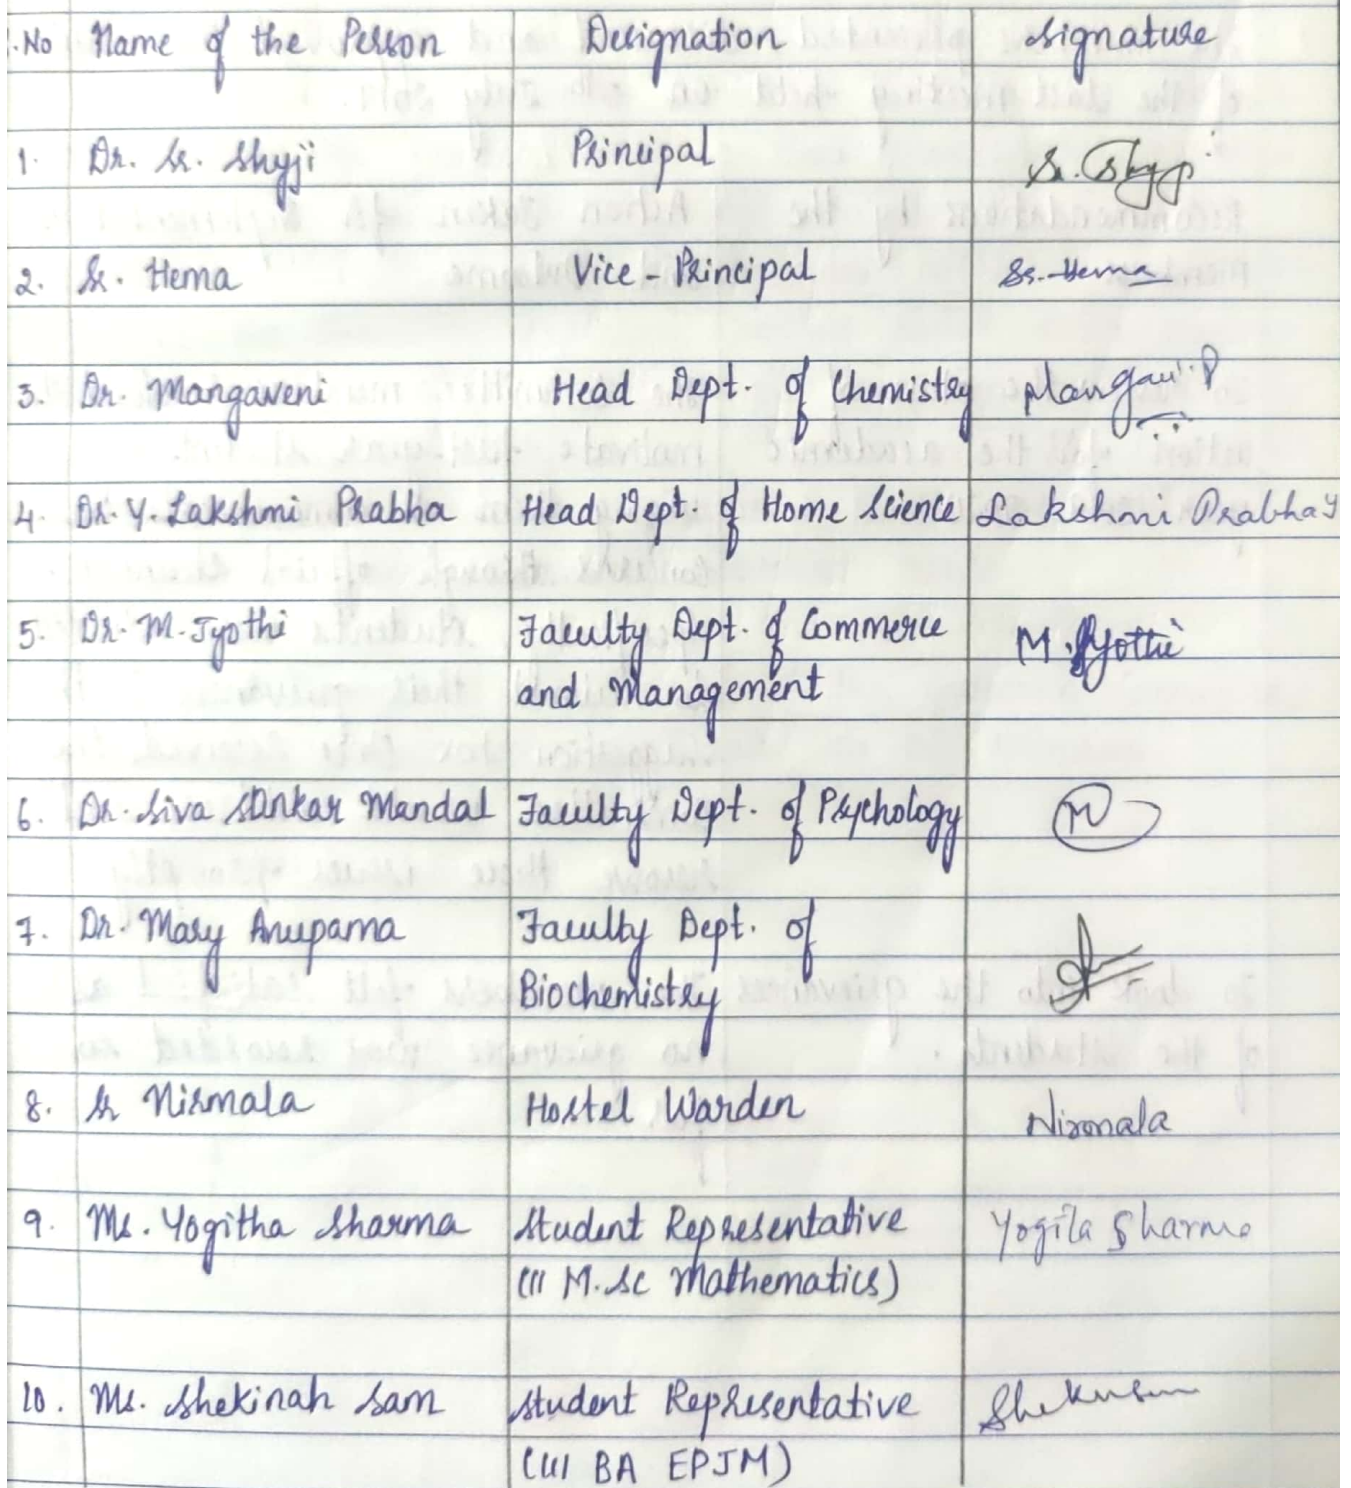 .No Name of the Person Designation Signature
1. Dr. Sr. Shyji Principal Sr. Shyji
2. Sr. Hema Vice-Principal Sr. Hema
3. Dr. Mangaveni Head Dept. of Chemistry
4. Dr. Y. Lakshmi Prabha Head Dept. of Home Science Lakshmi Prabha Y
5. Dr. M. Jyothi Faculty Dept. of Commerce M. Jyothi
and Management
6. Dr. Siva Sankar Mandal Faculty Dept. of Psychology
7. Dr. Mary Anupama Faculty Dept. of
Biochemistry
8. Sr Nirmala Hostel Warden Nirmala
9. Ms. Yogitha Sharma Student Representative Yogita Sharma
(II M.Sc Mathematics)
10. Ms. Shekinah Sam Student Representative
(III BA EPJM)